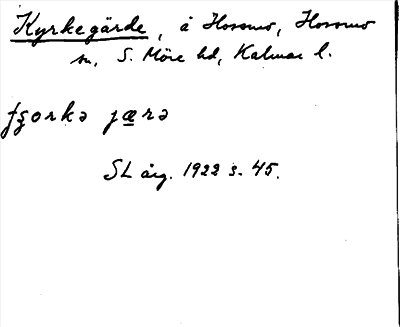 Kyrkegärde, å Hossmo, Hossmo
sn, S. Möre hd, Kalmar l.
ʃʒorkə jærə
SL årg. 1922 s. 45.